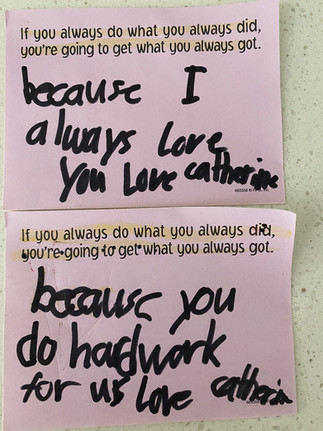 If you always do what you always did,
you're going to get what you always got.
because I
always love
you love catherine
If you always do what you always did,
you're going to get what you always got.
because you
do hardwork
for us love catherin